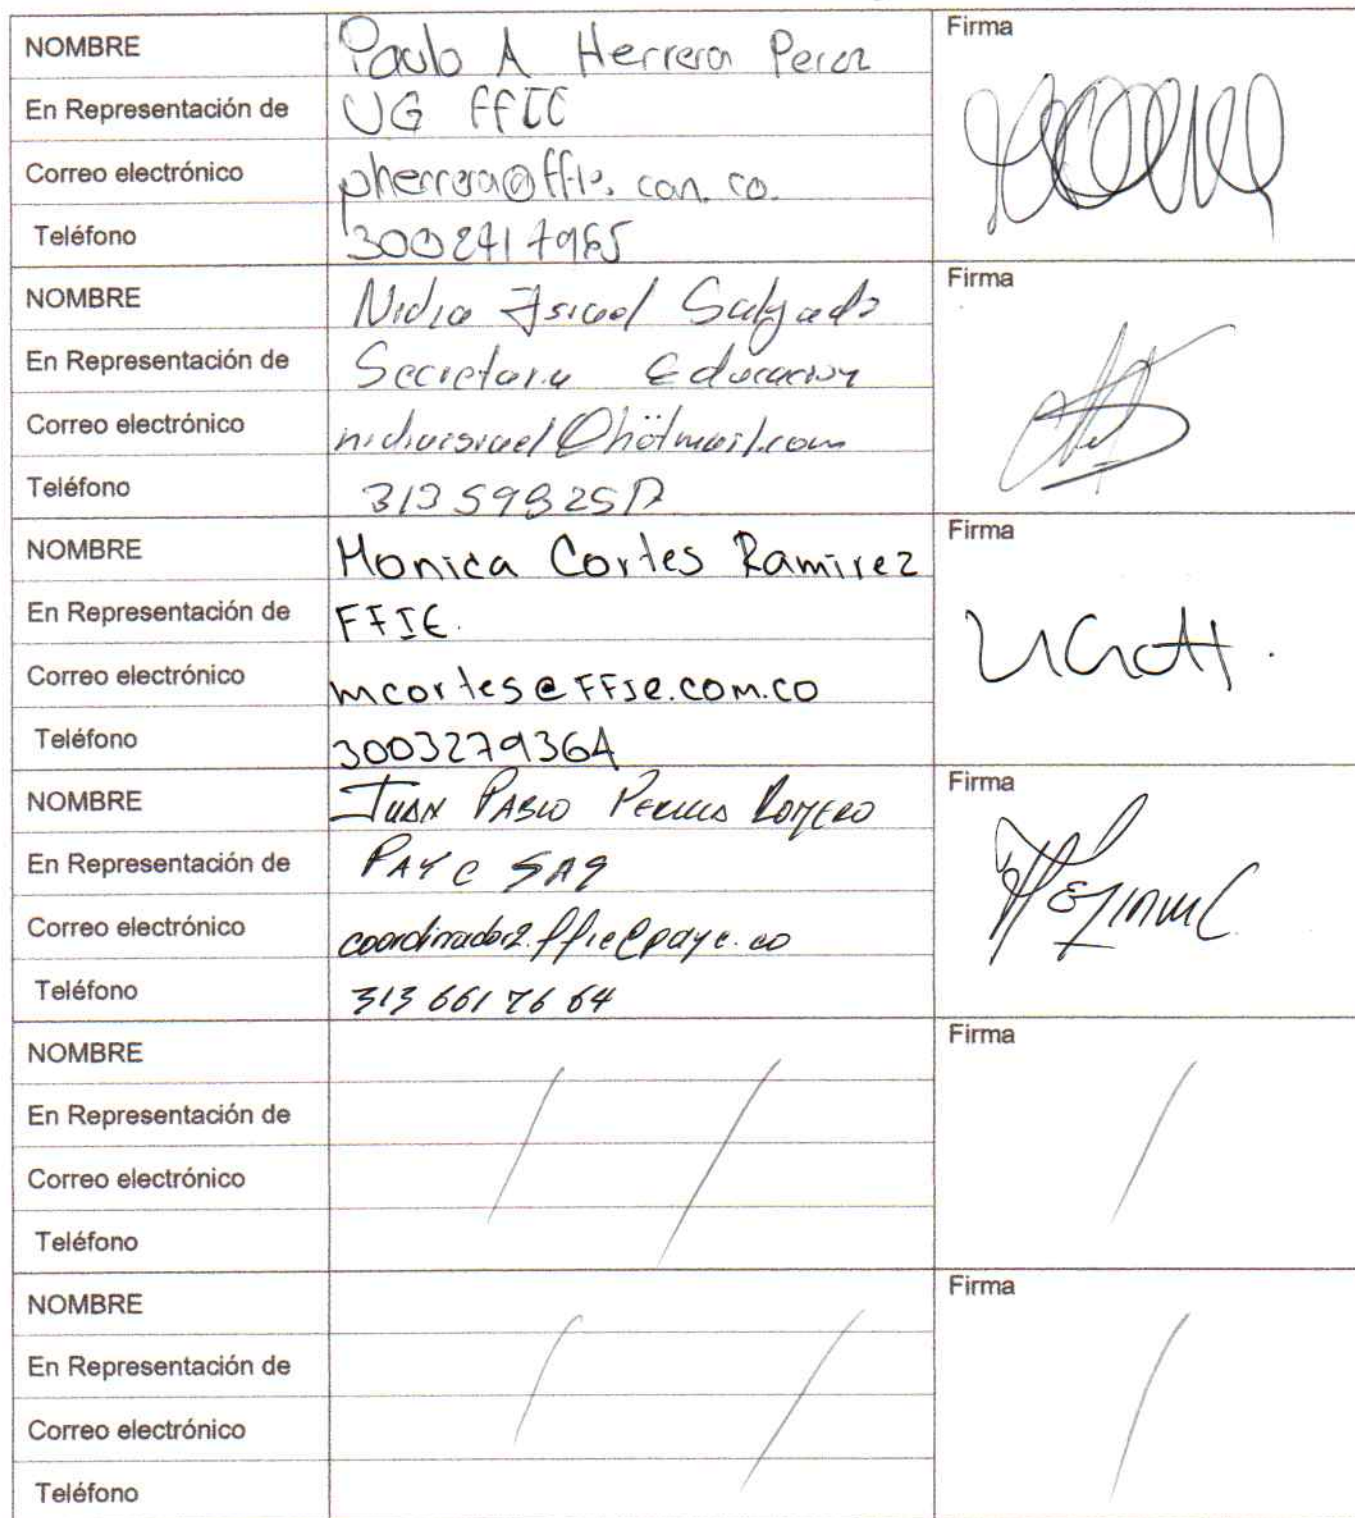 NOMBRE Paulo A Herrera Perez Firma
En Representación de UG FFIE
Correo electrónico pherrera@ffie.com.co.
Teléfono
NOMBRE Nidia Israel Salgado Firma
En Representación de Secretaria Educacion
Correo electrónico nidiaisrael@hotmail.com
Teléfono
NOMBRE Monica Cortes Ramirez Firma
En Representación de FFIE.
Correo electrónico mcortes@FFIe.com.co
Teléfono 3003279364
NOMBRE JUAN PABLO ROMERO Firma
En Representación de PAYC SAS
Correo electrónico coordinador2.ffie@payc.co
Teléfono 313 661 76 64
NOMBRE Firma
En Representación de
Correo electrónico
Teléfono
NOMBRE Firma
En Representación de
Correo electrónico
Teléfono